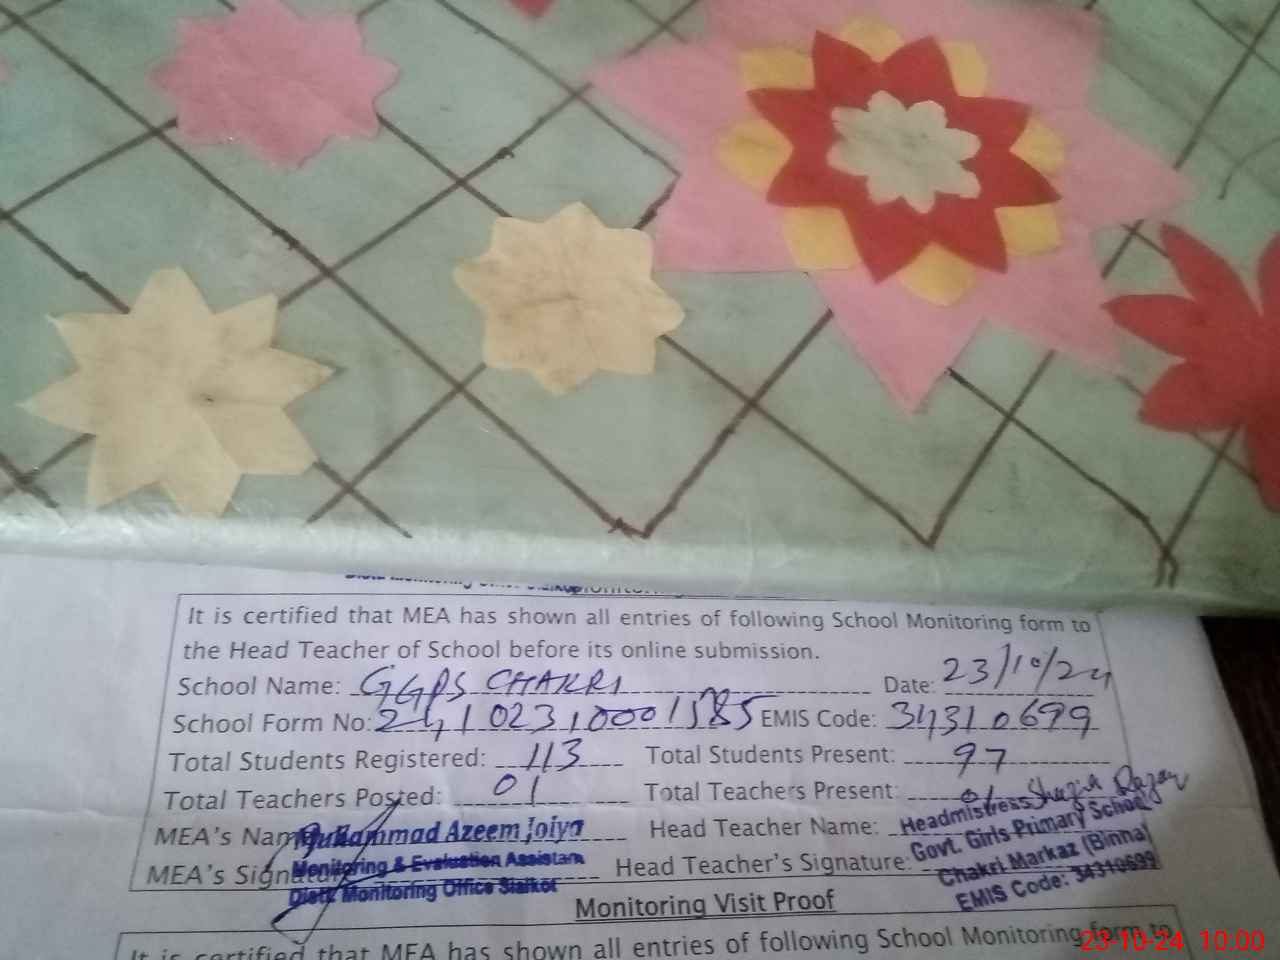 It is certified that MEA has shown all entries of following School Monitoring form to
the Head Teacher of School before its online submission.
School Name: GGPS CHAKRI Date: 23/10/24
School Form No: 24102310001585 EMIS Code: 34310699
Total Students Registered: 113 Total Students Present: 97
Total Teachers Posted: 01 Total Teachers Present: 01
MEA's Name Muhammad Azeem Joiya Head Teacher Name: Shazia
MEA's Signature Head Teacher's Signature:
Monitoring & Evaluation Assistant
Distt: Monitoring Office Sialkot
Headmistress
Govt. Girls Primary School
Chakri Markaz (Binna)
EMIS Code: 34310699
Monitoring Visit Proof
It is certified that MEA has shown all entries of following School Monitoring form to
23-10-24 10:00